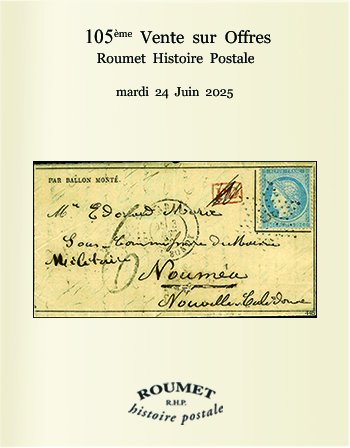 105ème Vente sur Offres
Roumet Histoire Postale
mardi 24 Juin 2025
PAR BALLON MONTÉ.
Mr Edouard Marie
Sous-Commissaire de Marine
Militaire
Nouméa
Nouvelle Calédonie
ROUMET
R.H.P.
histoire postale